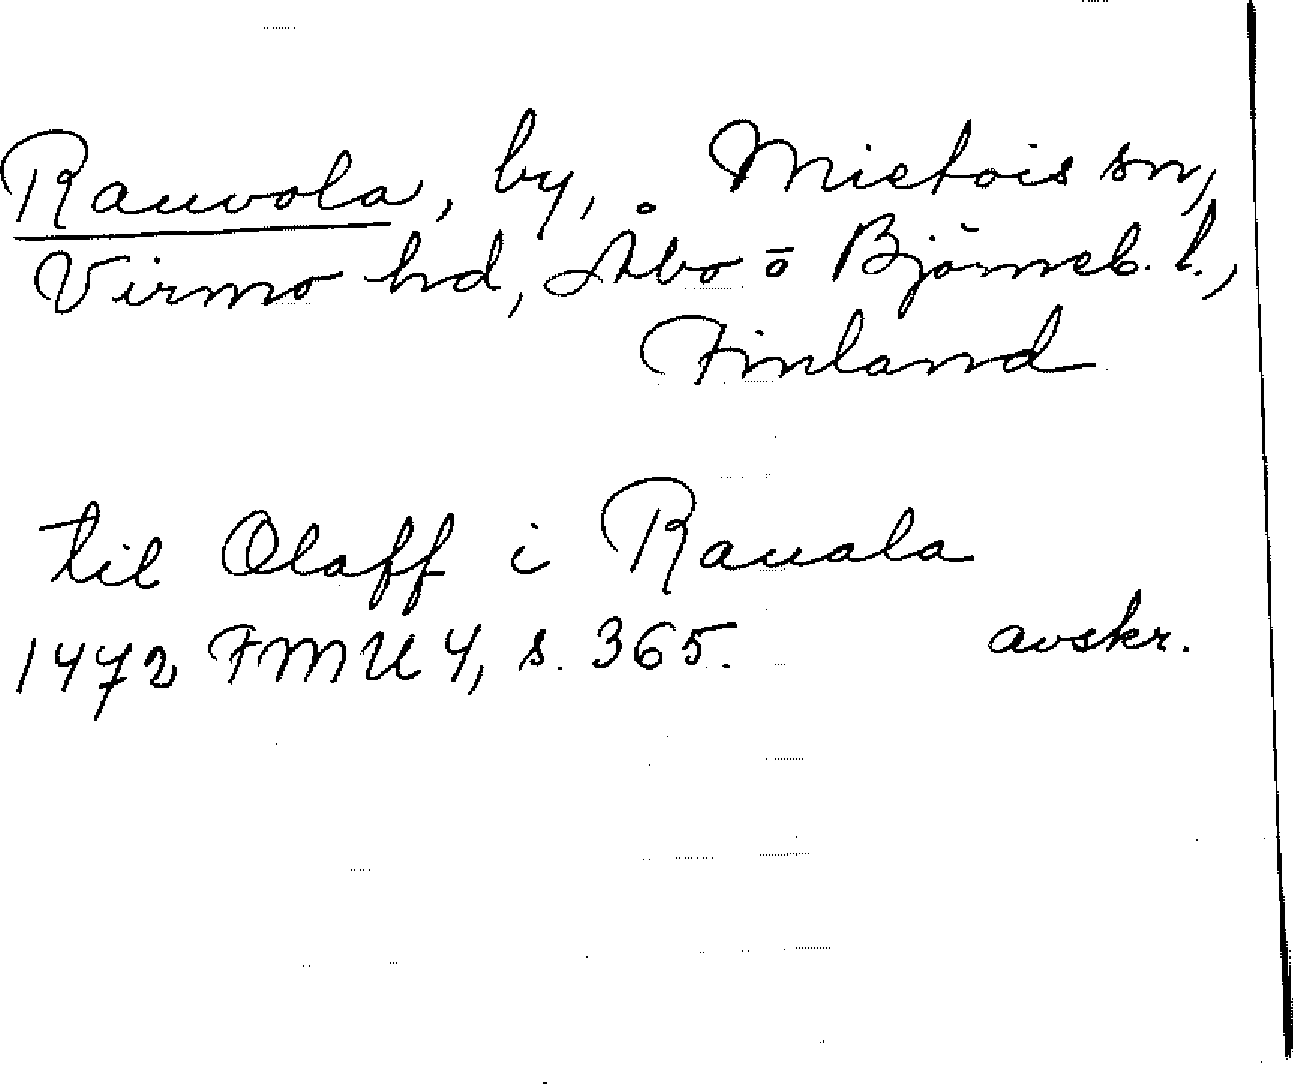 Rauvola, by, Mietois sn,
Virmo hd, Åbo o Björneb. l.,
Finland
til Olaff i Rauala
1472 FMU 4, s. 365. avskr.